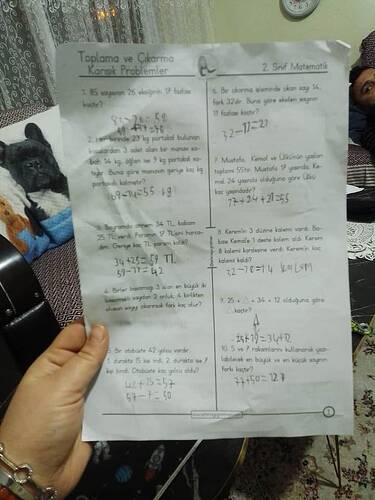 Toplama ve Çıkarma
Karışık Problemler
2. Sınıf Matematik
1. 85 sayısının 26 eksiğinin 19 fazlası
kaçtır?
2. Her birinde 23 kg portakal bulunan
kasalardan 3 adet alan bir manav sa-
bah 14 kg, öğlen ise 9 kg portakal sa-
tıyor. Buna göre manavın geriye kaç kg
portakalı kalmıştır?
3. Bayramda annem 34 TL, babam
25 TL verdi. Paramın 17 TL'sini harca-
dım. Geriye kaç TL param kaldı?
34+25=59 TL
59-17=42
4. Birler basamağı 3 olan en büyük iki
basamaklı sayıdan 3 onluk, 4 birlikten
oluşan sayıyı çıkarırsak fark kaç olur?
5. Bir otobüste 42 yolcu vardır.
1. durakta 15 kişi indi, 2. durakta ise 7
kişi bindi. Otobüste kaç yolcu oldu?
42+15=57
57-7=50
6. Bir çıkarma işleminde çıkan sayı 14,
fark 32'dir. Buna göre eksilen sayının
17 fazlası kaçtır?
7. Mustafa, Kemal ve Ülkü'nün yaşları
toplamı 55'tir. Mustafa 17 yaşında, Ke-
mal 24 yaşında olduğuna göre Ülkü
kaç yaşındadır?
8. Kerem'in 3 düzine kalemi vardı. Ba-
bası Kemal'e 1 deste kalem aldı. Kerem
8 kalemi kardeşine verdi. Kerem'in kaç
kalemi kaldı?
9. 25 + △ = 34 + 12 olduğuna göre
△ kaçtır?
10. 5 ve 7 rakamlarını kullanarak yazı-
labilecek en büyük ve en küçük sayının
farkı kaçtır?
77+50=127
1